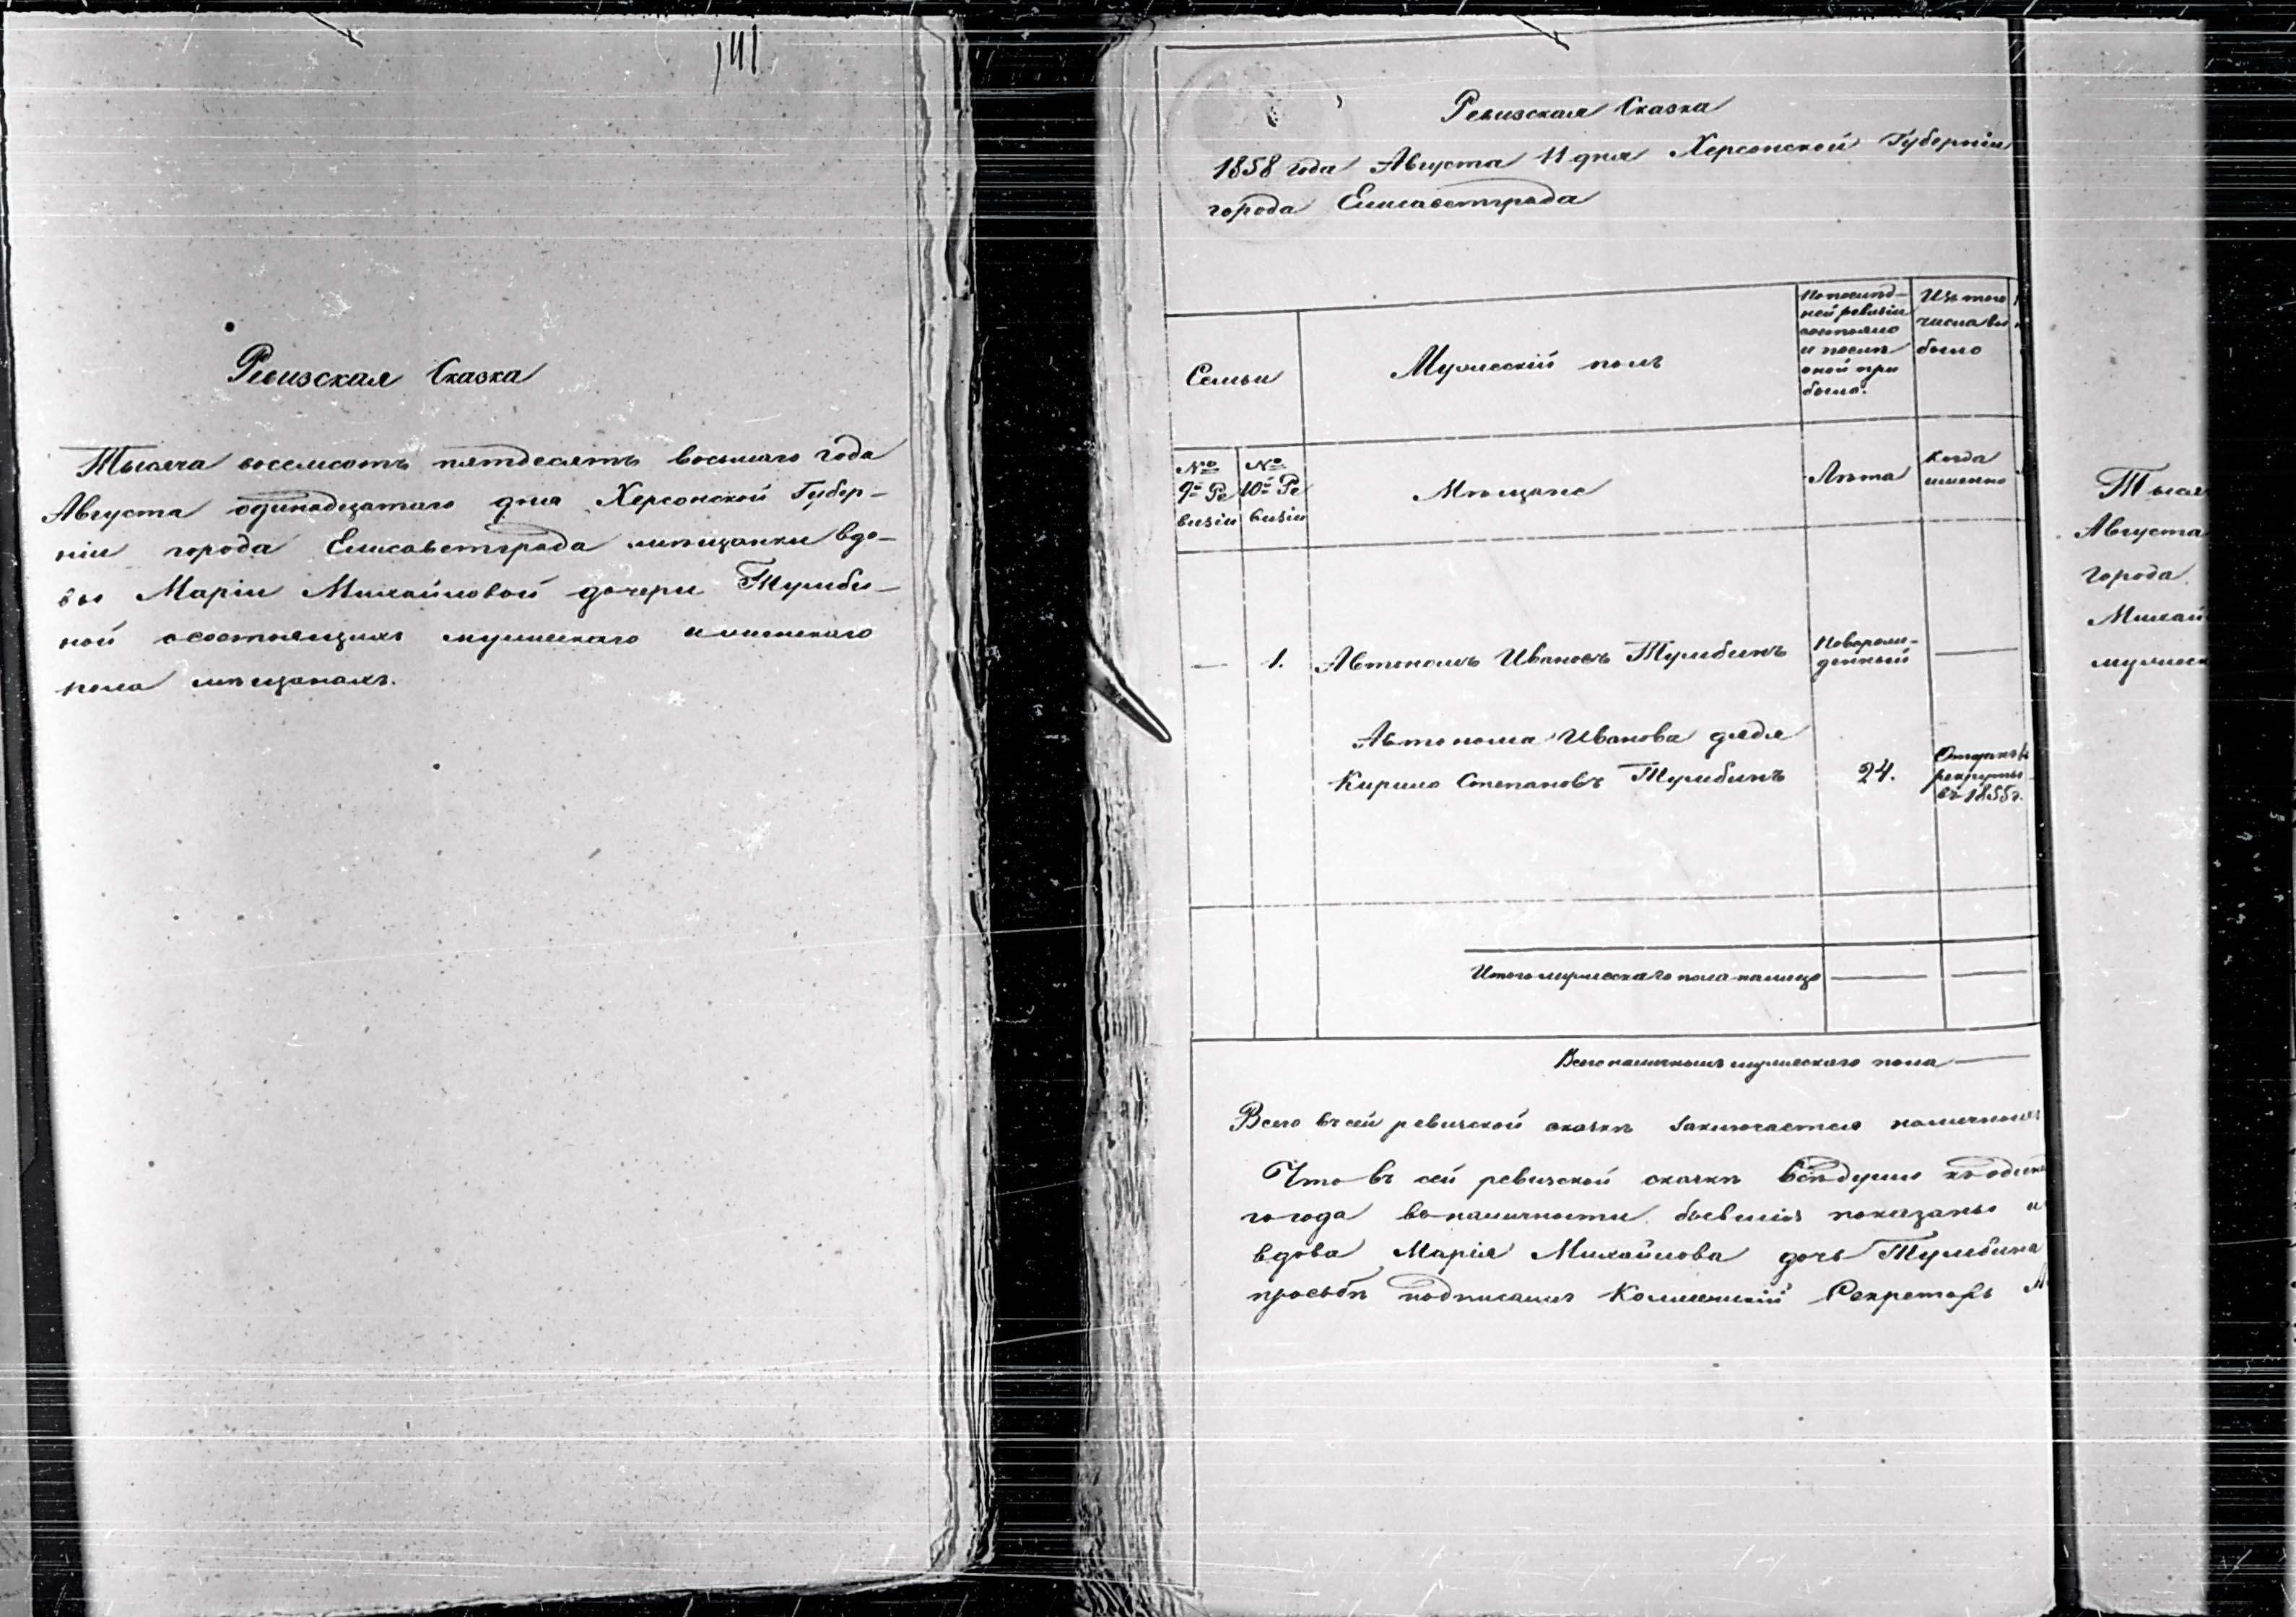 141
Ревизская Сказка
Тысяча восемсотъ пятдесятъ восьмаго года
Августа одинадцатаго дня Херсонской Губер-
ніи города Елисаветграда мѣщанки вдо-
вы Маріи Михайловой дочери Тумби-
ной осостоящихъ мужескаго иженскаго
пола мѣщанахъ.
Ревизская Сказка
1858 года Августа 11 дня Херсонской Губерніи
города Елисаветграда
Семьи
Мужескій полъ
По послѣд-
ней ревизіи
состояло
и послѣ
оной при
было.
Изъ того
числа вы
было
№ 9й Ре
визіи
№ 10й Ре
визіи
Мѣщане
Лѣта
Когда
именно
— 1. Автономъ Ивановъ Тумбинъ Новорож-
денный —
Автонома Иванова дядя
Кирило Степановъ Тумбинъ 24.
рекруты
въ 1855г.
Итого мужескаго пола налицо — —
Всего наличныхъ мужескаго пола —
Всего въ сей ревизской сказкѣ заключается наличныхъ
Что въ сей ревизской сказкѣ всѣ души
го года въ наличности бывшія показаны и
вдова Марія Михайлова дочь Тумбина
просьбѣ подписался Коллежскій Секретарь
Тыся
Августа
города
Михай
мужеск